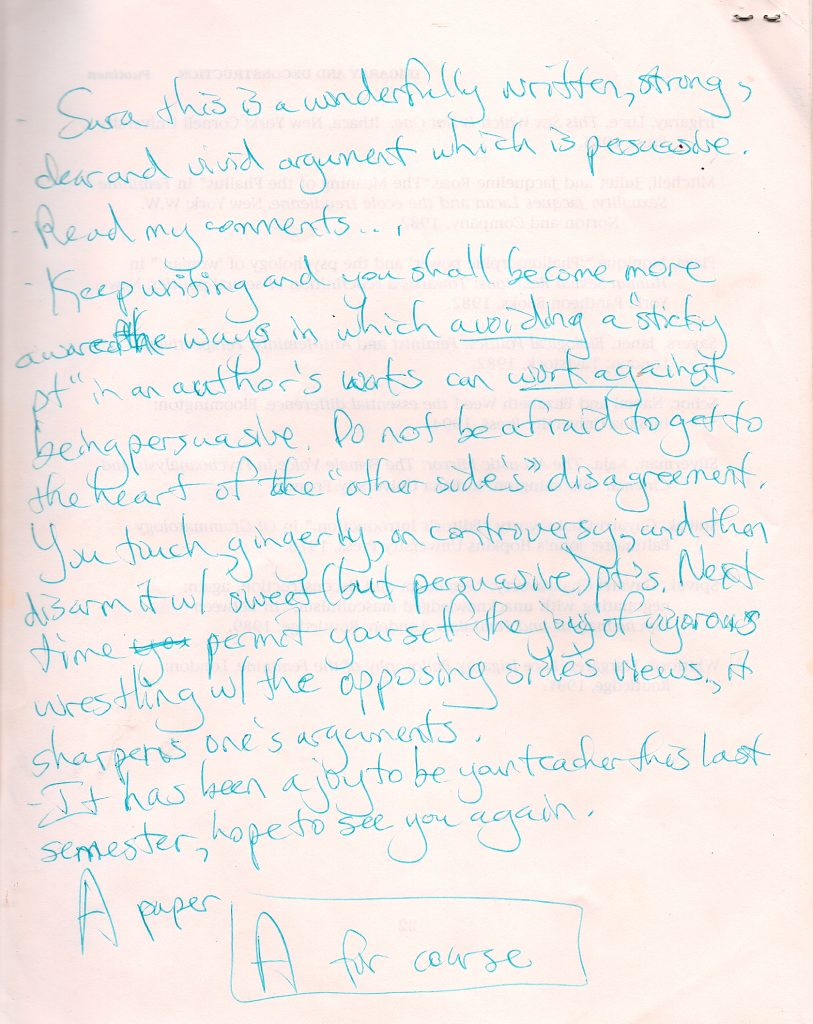 - Sara this is a wonderfully written, strong,
clear and vivid argument which is persuasive.
- Read my comments....
- Keep writing and you shall become more
aware of the ways in which avoiding a "sticky
pt" in an author's works can work against
being persuasive. Do not be afraid to get to
the heart of the "other side's" disagreement.
You touch, gingerly, on controversy, and then
disarm it w/ sweet (but persuasive) pts. Next
time permit yourself the joy of vigorous
wrestling w/ the opposing side's views, it
sharpens one's arguments.
- It has been a joy to be your teacher this last
semester, hope to see you again.
A paper
A for course